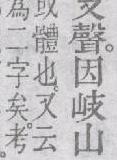 支聲。因岐山
或體也。又云
爲二字矣。考